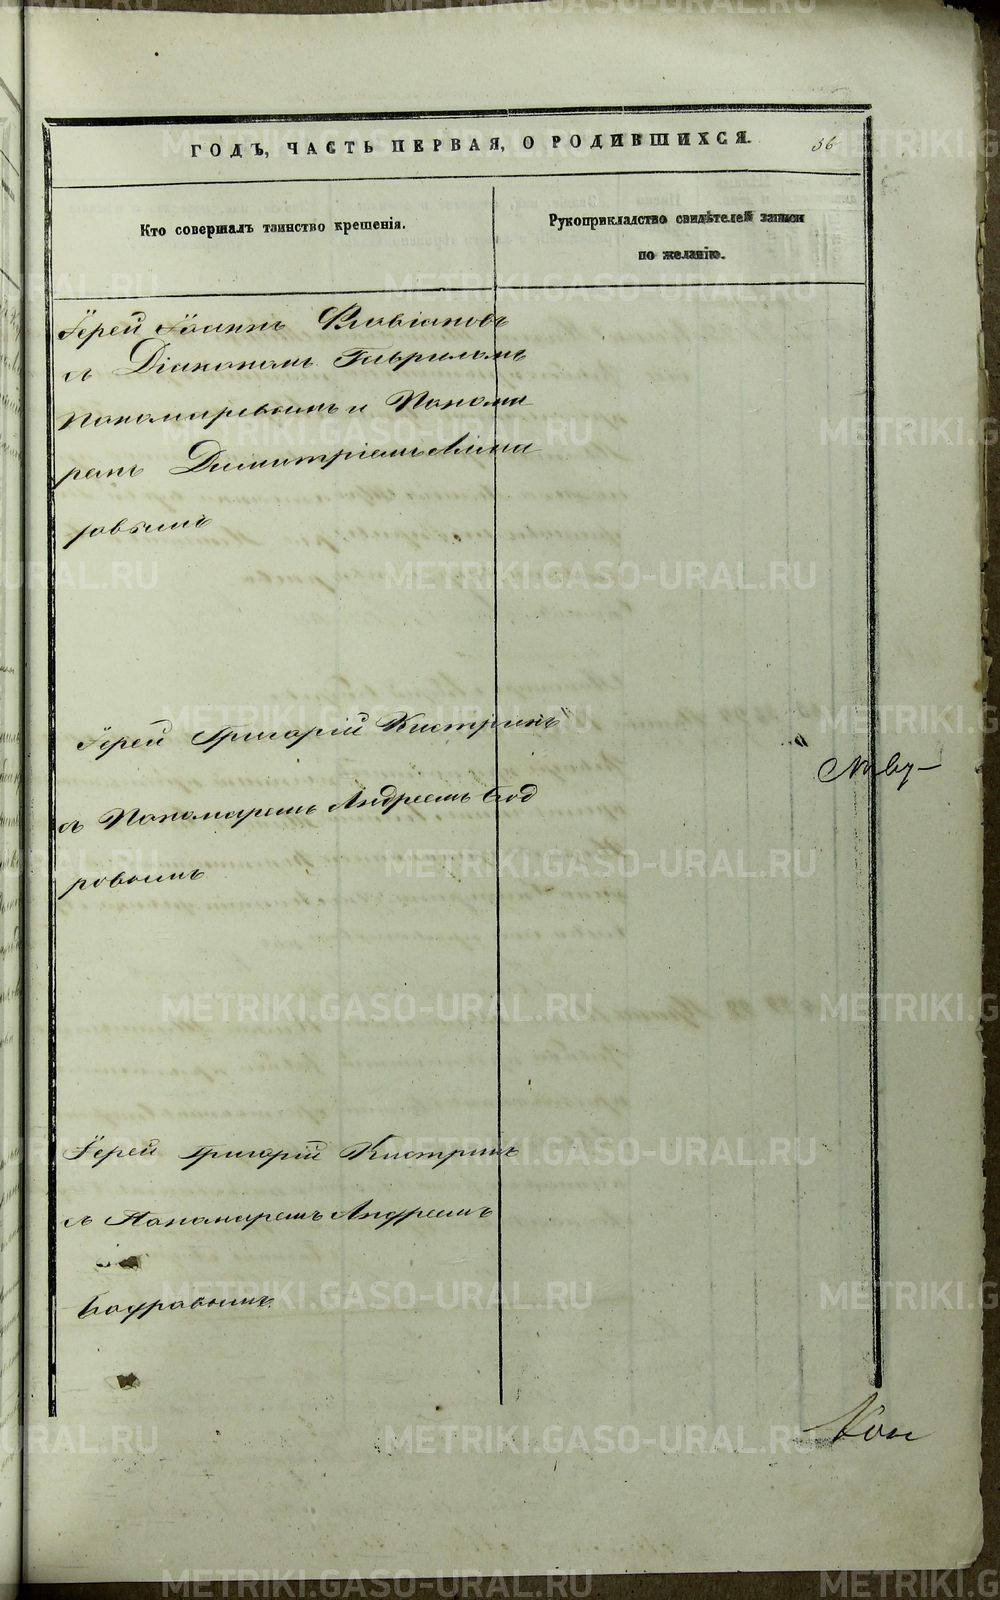 ГОДЪ, ЧАСТЬ ПЕРВАЯ, О РОДИВШИХСЯ.
56
Кто совершалъ таинство крещенія.
Рукоприкладство свидѣтелей записи
по желанію.
Іерей Іоаннъ Флавіановъ
съ Діакономъ Гавриломъ
Пономаревымъ и Понома
ремъ Димитріемъ
Іерей Григорій Кистринъ
съ Пономаремъ Андреемъ Бод
ровымъ
Іерей Григорій Кистринъ
съ Пономаремъ Андреемъ
Бодровымъ
METRIKI.GASO-URAL.RU